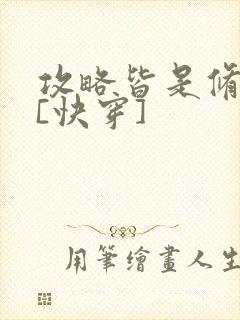 攻略皆是脩
[快穿]
用筆繪畫人生